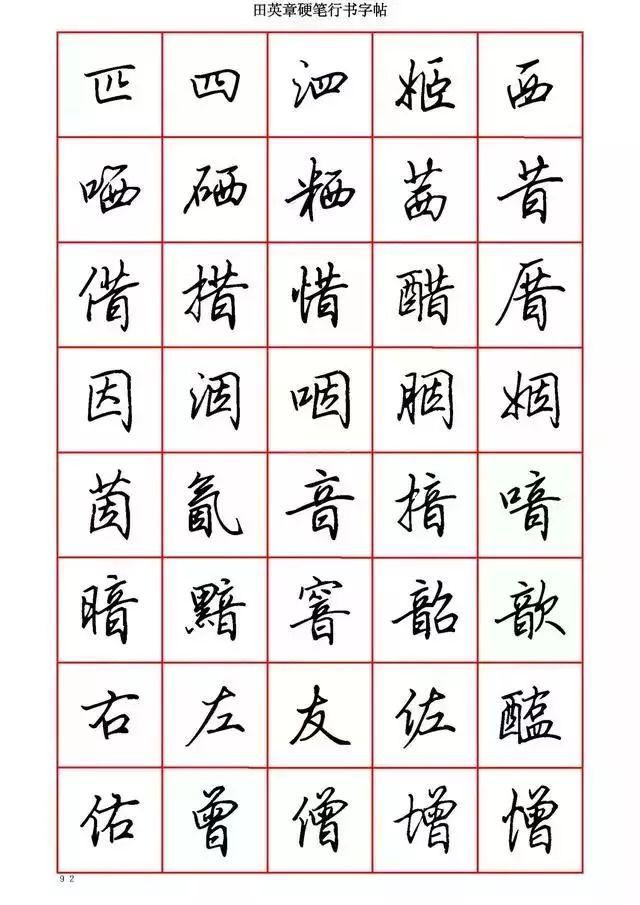 田英章硬笔行书字帖
匹 四 泗 姬 西
哂 硒 粞 茜 昔
借 措 惜 醋 厝
因 洇 咽 胭 姻
茵 氤 音 揞 喑
暗 黯 窨 韶 歆
右 左 友 佐 醖
佑 曾 僧 增 憎
92